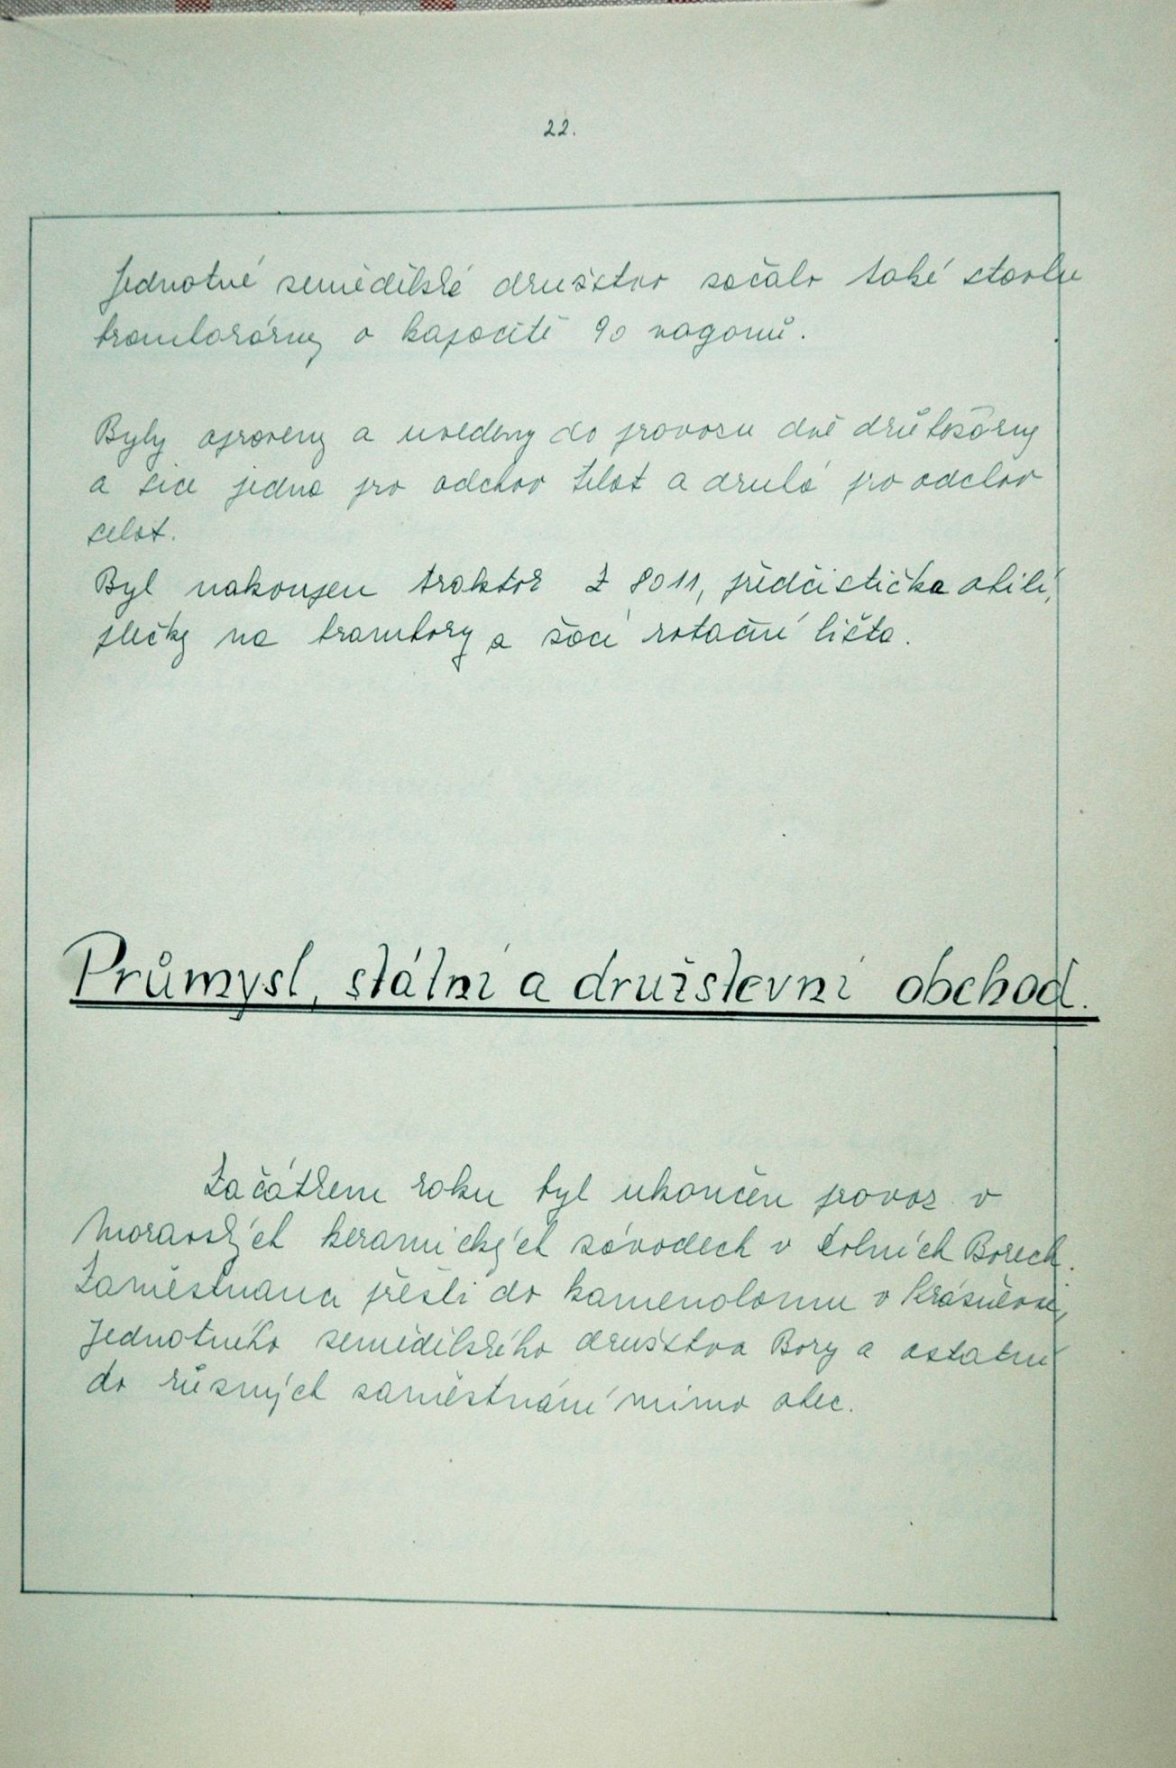 22.
Jednotné zemědělské družstvo začalo také stavbu
bramborárny o kapacitě 90 vagonů.
Byly opraveny a uvedeny do provozu dvě drůbežárny
a sice jedna pro odchov telat a druhá pro odchov
selat.
Byl nakoupen traktor Z 8011, předčistička obilí,
plečky na brambory a žací rotační lišta.
Průmysl, státní a družstevní obchod.
Začátkem roku byl ukončen provoz v
Moravských keramických závodech v Dolních Borech.
Zaměstnanci přešli do kamenolomu v Krásněvsi,
Jednotného zemědělského družstva Bory a ostatní
do různých zaměstnání mimo obec.